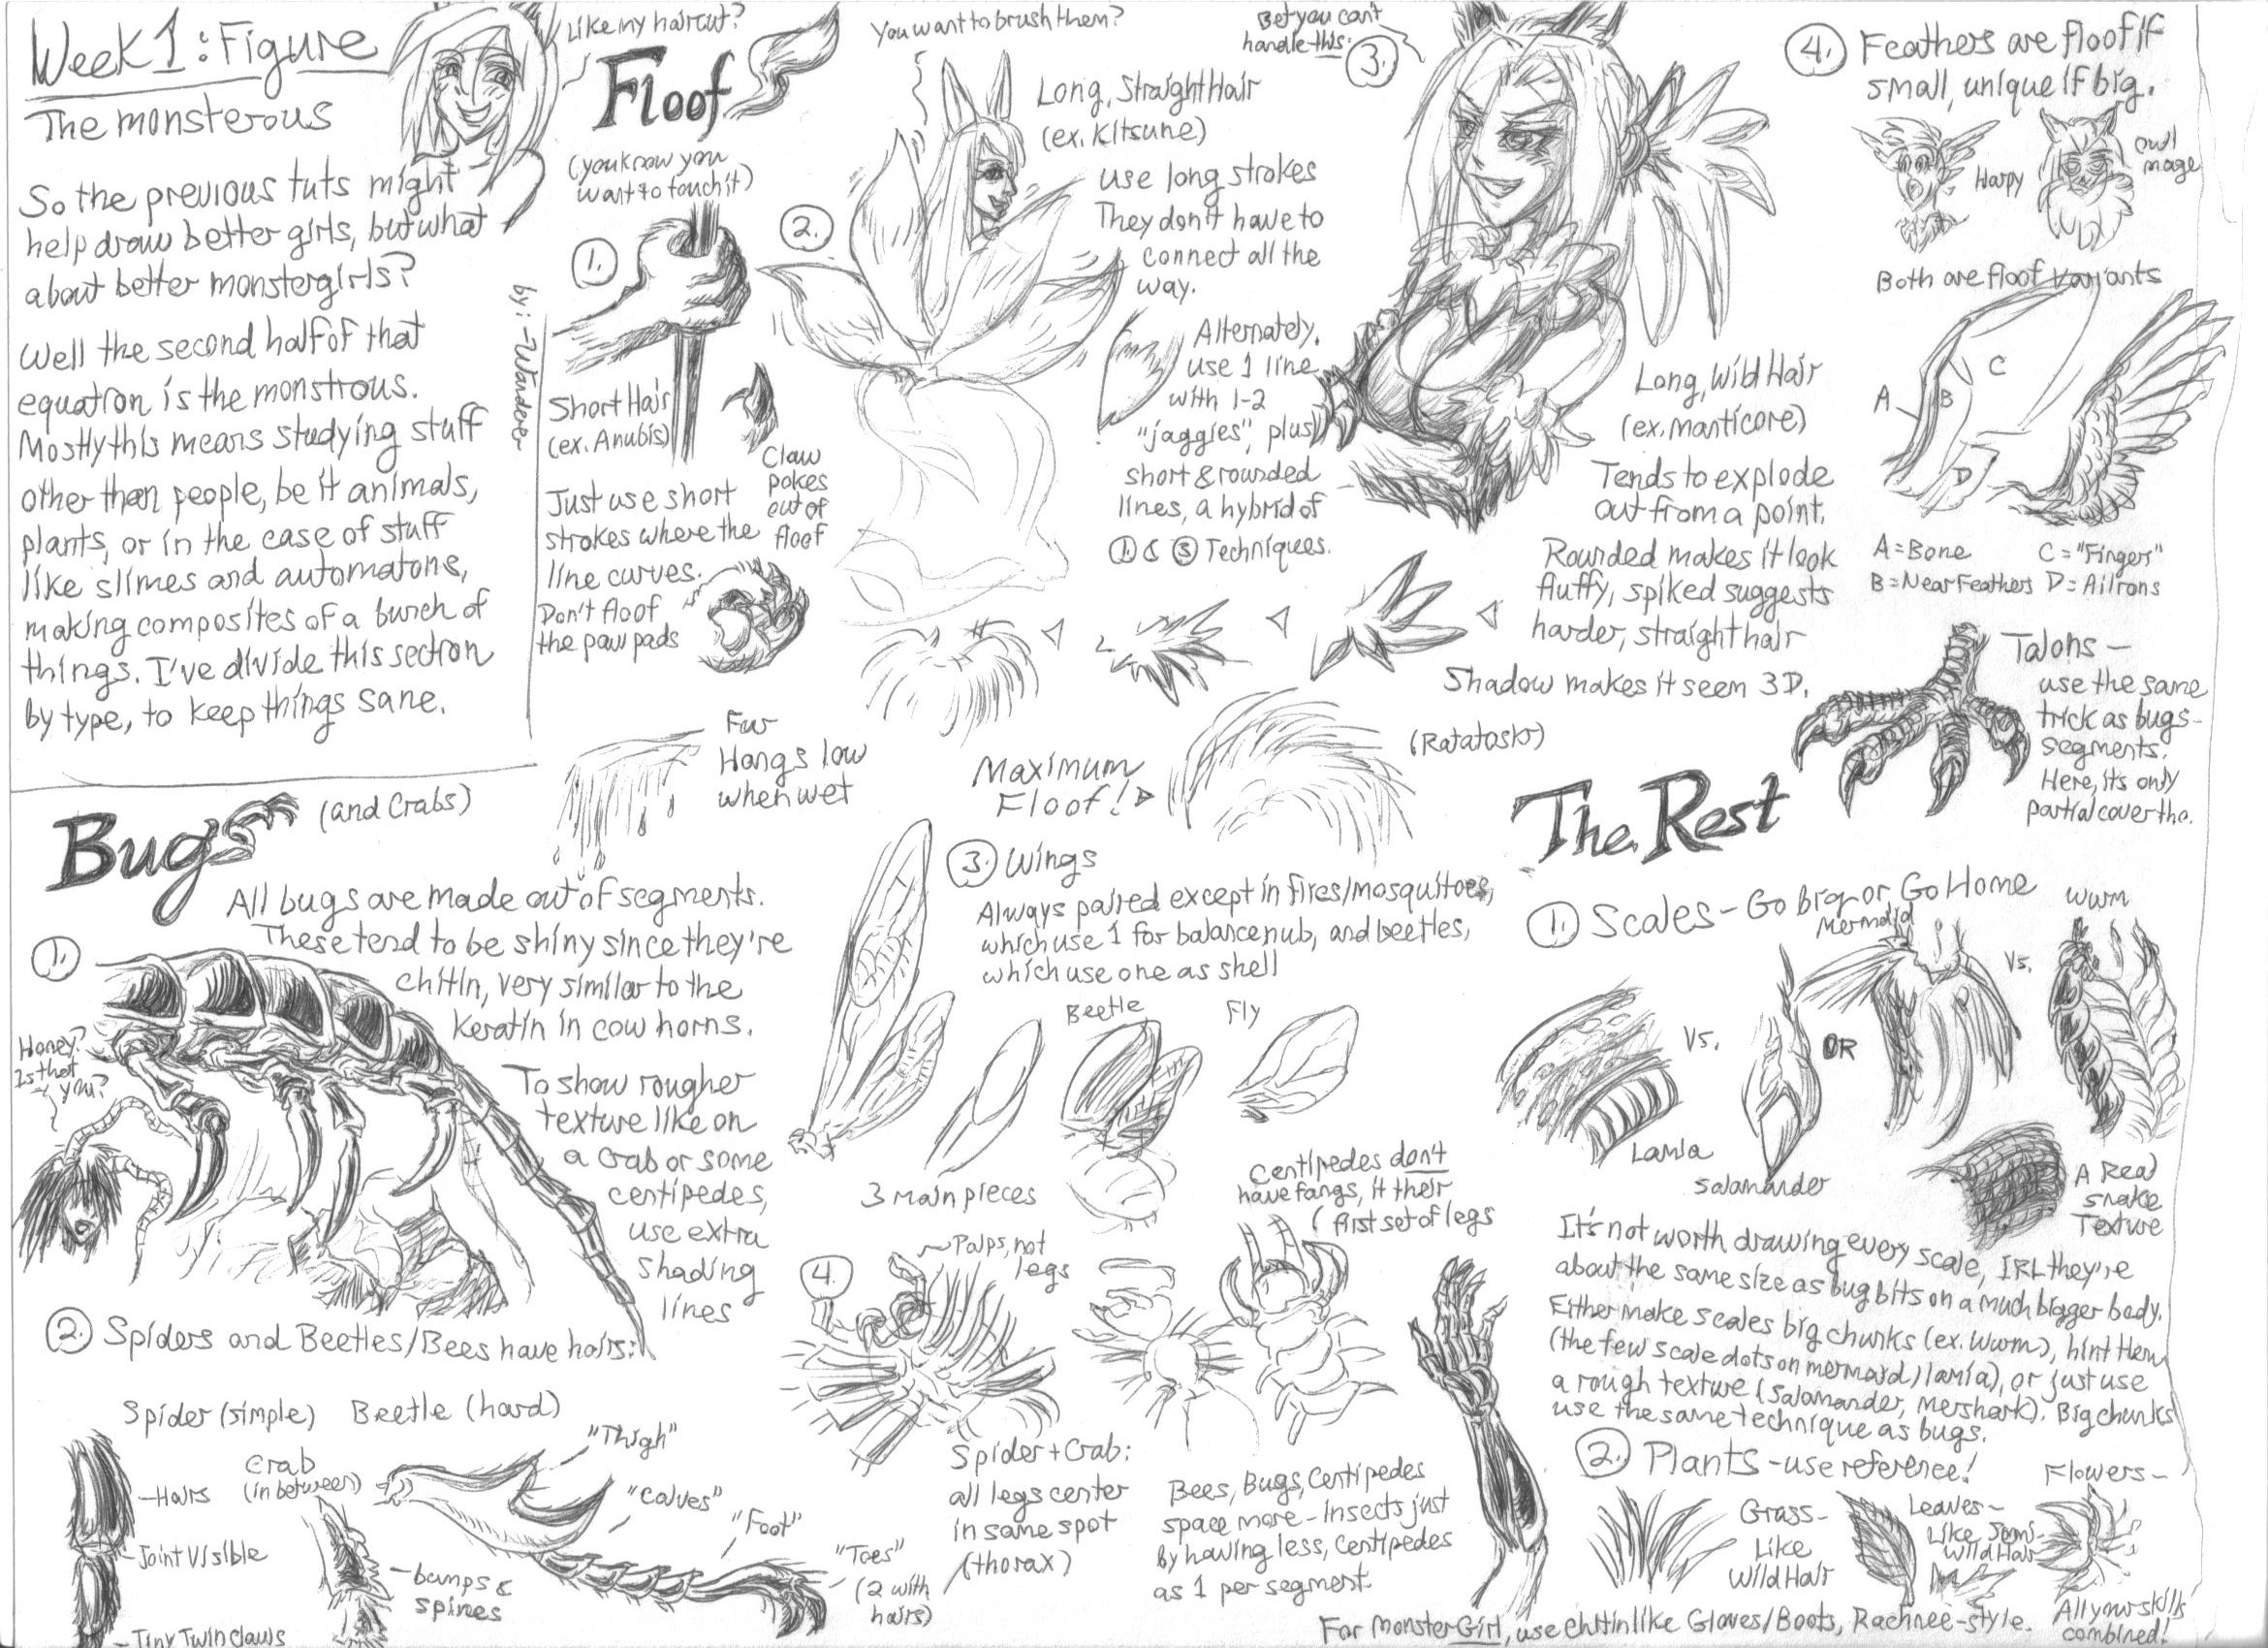 Week 1: Figure
The monsterous
So the previous tuts might
help draw better girls, but what
about better monstergirls?
Well the second half of that
equation is the monstrous.
Mostly this means studying stuff
other than people, be it animals,
plants, or in the case of stuff
like slimes and automatons,
making composites of a bunch of
things. I've divide this section
by type, to keep things sane.
by: ~Wander
Like my haircut?
Floof
(you know you
want to touch it)
1.
Short Hair
(ex. Anubis)
Just use short
strokes where the
line curves.
Don't floof
the paw pads
Claw
pokes
out of
floof
Fur
Hangs low
when wet
You want to brush them?
2.
Long, Straight Hair
(ex. Kitsune)
use long strokes
They don't have to
connect all the
way.
Alternately,
use 1 line
with 1-2
"jaggies", plus
short & rounded
lines, a hybrid of
1. & 3 Techniques.
Bet you can't
handle this:
3.
Long, Wild Hair
(ex. manticore)
Tends to explode
out from a point.
Rounded makes it look
fluffy, spiked suggests
harder, straight hair
Shadow makes it seem 3D.
Maximum
Floof!
(Ratatoskr)
4. Feathers are floof if
small, unique if big.
Harpy
owl
mage
Both are floof variants
A
B
C
D
A = Bone
B = Near Feathers
C = "Fingers"
D = Ailrons
Talons —
use the same
trick as bugs-
segments!
Here, its only
partial cover tho.
Bugs (and Crabs)
All bugs are made out of segments.
These tend to be shiny since they're
chitin, very similar to the
keratin in cow horns.
1.
Honey?
Is that
you?
To show rougher
texture like on
a crab or some
centipedes,
use extra
shading
lines
2. Spiders and Beetles/Bees have hairs:
Spider (simple)
Beetle (hard)
Crab
(in between)
-Hairs
-Joint Visible
-Tiny Twin Claws
-bumps &
spines
"Thigh"
"Calves"
"Foot"
"Toes"
(2 with
hairs)
3. Wings
Always paired except in flies/mosquitoes,
which use 1 for balance nub, and beetles,
which use one as shell
Beetle
Fly
3 main pieces
4.
Palps, not
legs
Centipedes don't
have fangs, it their
first set of legs
Spider + Crab:
all legs center
in same spot
(thorax)
Bees, Bugs, Centipedes
space more - Insects just
by having less, centipedes
as 1 per segment.
For Monster Girl, use chitin like Gloves/Boots, Rachnee-style.
The Rest
1. Scales - Go Big or Go Home
Mermaid
Wurm
Vs.
Vs.
OR
Lamia
Salamander
A Real
snake
Texture
It's not worth drawing every scale, IRL they're
about the same size as bug bits on a much bigger body.
Either make scales big chunks (ex. Wurm), hint them
(the few scale dots on mermaid/lamia), or just use
a rough texture (Salamander, Mershark). Big chunks
use the same technique as bugs.
2. Plants - use reference!
Grass-
Like
Wild Hair
Leaves-
Like
Wild Hair
Flowers-
All your skills
combined!